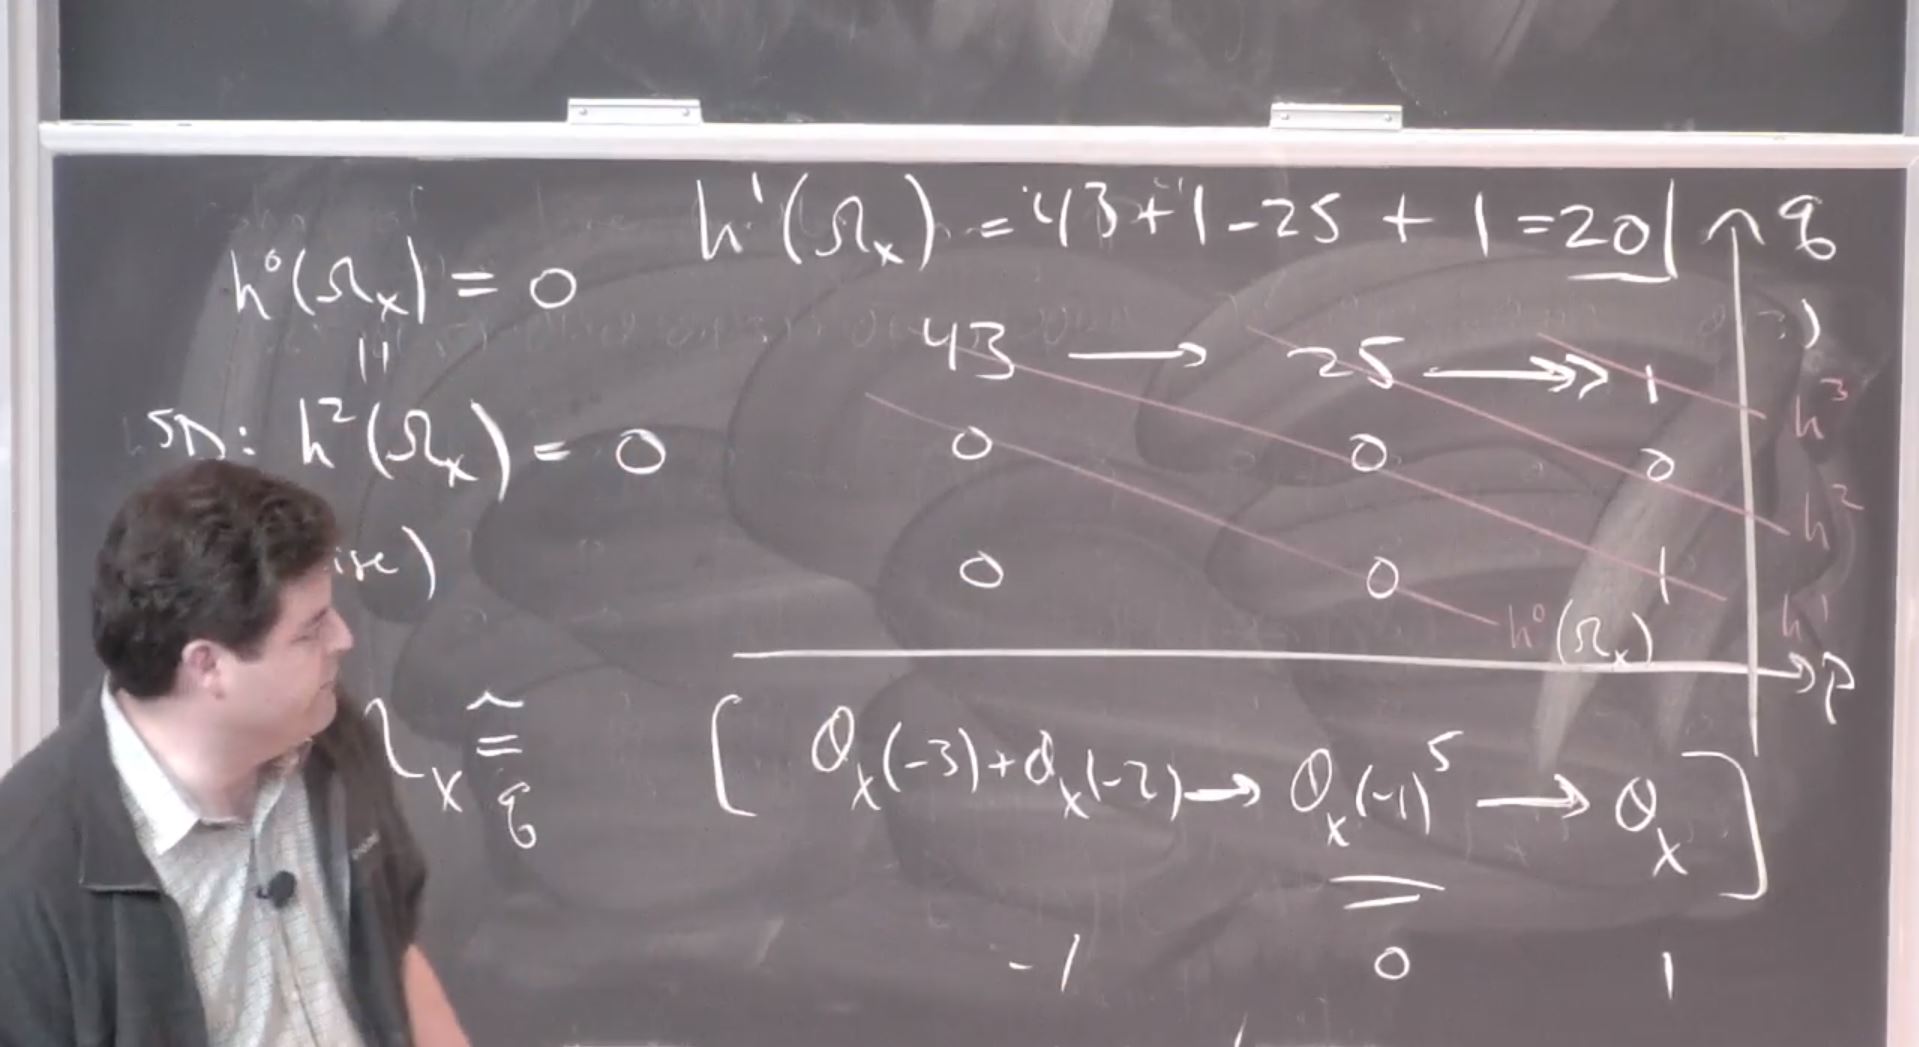 h¹(Ω_X) = 43+1-25 + 1 = 20
h⁰(Ω_X) = 0
SD: h²(Ω_X) = 0
ise)
↑ q
43 → 25 ↠ 1
0 0 0
0 0 1
h³
h²
h¹
h⁰(Ω_X)
→ p
Ω_X ≅ q [ O_X(-3) + O_X(-2) → O_X(-1)⁵ → O_X ]
-1 0 1